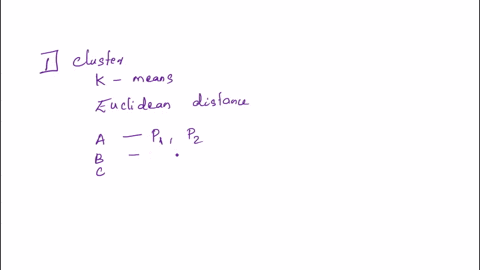 I cluster
K - means
Euclidean distance
A — P1, P2
B -
C